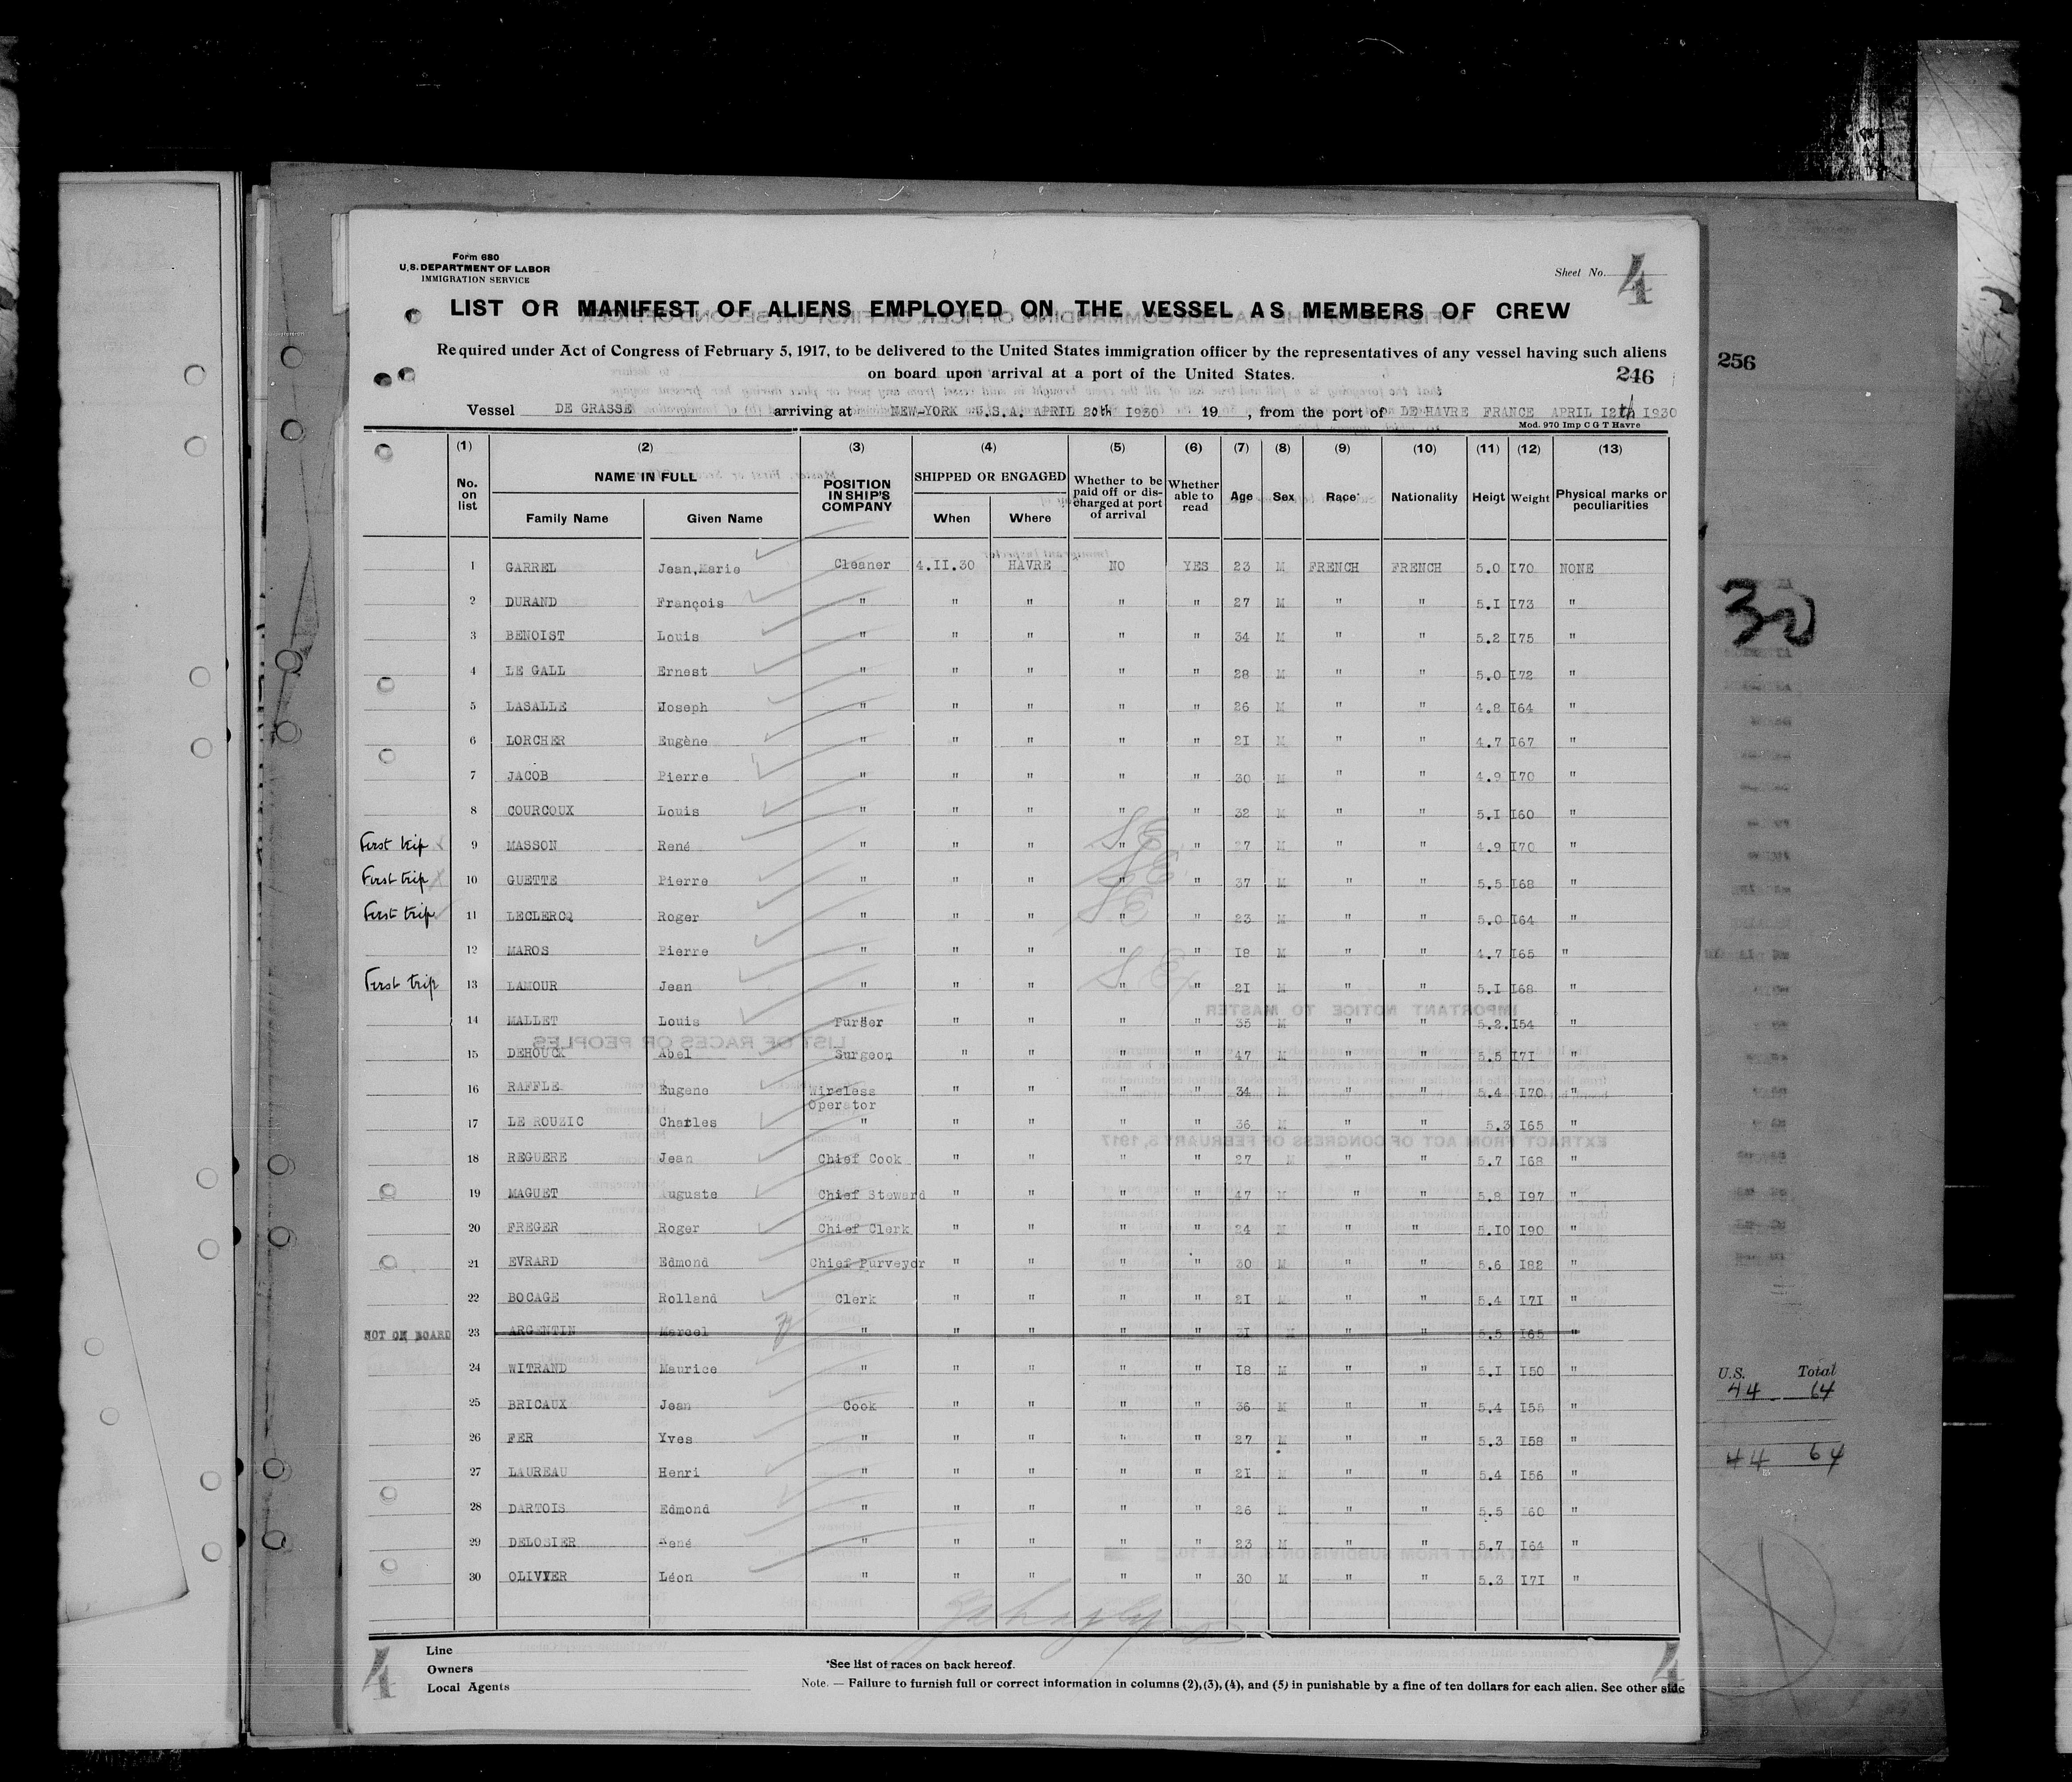 Form 680
U.S. DEPARTMENT OF LABOR
IMMIGRATION SERVICE
Sheet No. 4
LIST OR MANIFEST OF ALIENS EMPLOYED ON THE VESSEL AS MEMBERS OF CREW
Required under Act of Congress of February 5, 1917, to be delivered to the United States immigration officer by the representatives of any vessel having such aliens
on board upon arrival at a port of the United States.
246
256
Vessel DE GRASSE arriving at NEW-YORK U.S.A. APRIL 20th 1930 19 , from the port of DE HAVRE FRANCE APRIL I2th 1930
Mod. 970 Imp C G T Havre
(1) (2) (3) (4) (5) (6) (7) (8) (9) (10) (11) (12) (13)
No. on list NAME IN FULL Family Name Given Name POSITION IN SHIP'S COMPANY SHIPPED OR ENGAGED When Where Whether to be paid off or discharged at port of arrival Whether able to read Age Sex Race* Nationality Heigt Weight Physical marks or peculiarities
1 GARREL Jean,Marie Cleaner 4.II.30 HAVRE NO YES 23 M FRENCH FRENCH 5.0 I70 NONE
2 DURAND François " " " " " 27 M " " 5.I I73 "
3 BENOIST Louis " " " " " 34 M " " 5.2 I75 "
4 LE GALL Ernest " " " " " 28 M " " 5.0 I72 "
5 LASALLE Joseph " " " " " 26 M " " 4.8 I64 "
6 LORCHER Eugène " " " " " 2I M " " 4.7 I67 "
7 JACOB Pierre " " " " " 30 M " " 4.9 I70 "
8 COURCOUX Louis " " " " " 32 M " " 5.I I60 "
First trip 9 MASSON René " " " " S E " 27 M " " 4.9 I70 "
First trip 10 GUETTE Pierre " " " " S E " 37 M " " 5.5 I68 "
First trip 11 LECLERCQ Roger " " " " S E " 23 M " " 5.0 I64 "
12 MAROS Pierre " " " " " I8 M " " 4.7 I65 "
First trip 13 LAMOUR Jean " " " " S. Ex " 2I M " " 5.I I68 "
14 MALLET Louis Purser " " " " 35 M " " 5.2. I54 "
15 DEHOUCK Abel Surgeon " " " " 47 M " " 5.5 I7I "
16 RAFFLE Eugene Wireless Operator " " " " 34 M " " 5.4 I70 "
17 LE ROUZIC Charles " " " " " 36 M " " 5.3 I65 "
18 REGUERE Jean Chief Cook " " " " 27 M " " 5.7 I68 "
19 MAGUET Auguste Chief Steward " " " " 47 M " " 5.8 I97 "
20 FREGER Roger Chief Clerk " " " " 24 M " " 5.I0 I90 "
21 EVRARD Edmond Chief Purveyor " " " " 30 M " " 5.6 I82 "
22 BOCAGE Rolland Clerk " " " " 2I M " " 5.4 I7I "
NOT ON BOARD 23 ARGENTIN Marcel " " " " " 3I M " " 5.5 I65 "
24 WITRAND Maurice " " " " " I8 M " " 5.I I50 "
25 BRICAUX Jean Cook " " " " 36 M " " 5.4 I55 "
26 FER Yves " " " " " 27 M " " 5.3 I58 "
27 LAUREAU Henri " " " " " 2I M " " 5.4 I56 "
28 DARTOIS Edmond " " " " " 26 M " " 5.5 I60 "
29 DELOSIER René " " " " " 23 M " " 5.7 I64 "
30 OLIVIER Léon " " " " " 30 M " " 5.3 I7I "
30
U.S. Total
44 64
44 64
Line
Owners
Local Agents
*See list of races on back hereof.
Note. — Failure to furnish full or correct information in columns (2),(3),(4), and (5) in punishable by a fine of ten dollars for each alien. See other side
4
4